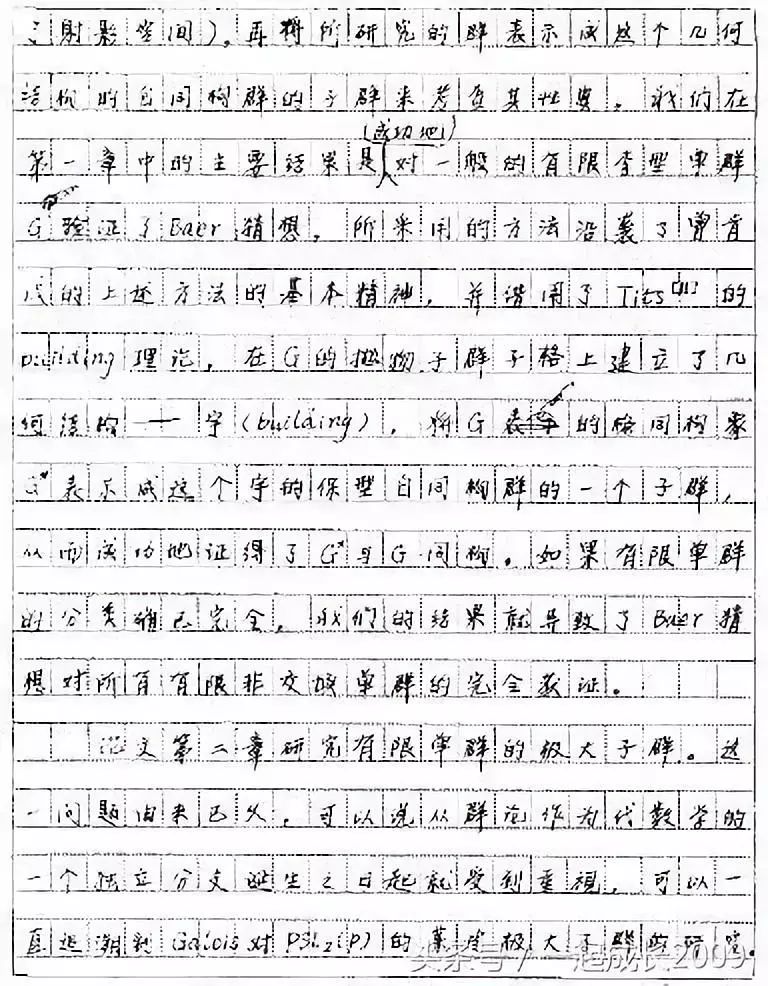 射影空间),再将所研究的群表示成这个几何
结构的自同构群的子群来考查其性质。我们在
(成功地)
第一章中的主要结果是对一般的有限李型单群
G验证了Baer猜想,所采用的方法沿袭了曾肯
成的上述方法的基本精神,并借用了Tits[11]的
building理论,在G的抛物子群子格上建立了几
何结构——宇(building),将G的格同构象
G*表示成这个宇的保型自同构群的一个子群,
从而成功地证得了G*与G同构。如果有限单群
的分类确已完全,我们的结果就导致了Baer猜
想对所有有限非交换单群的完全获证。
论文第二章研究有限单群的极大子群。这
一问题由来已久,可以说从群论作为代数学的
一个独立分支诞生之日起就受到重视,可以一
直追溯到Galois对PSL₂(P)的某些极大子群的研究。
头条号/一起成长2009